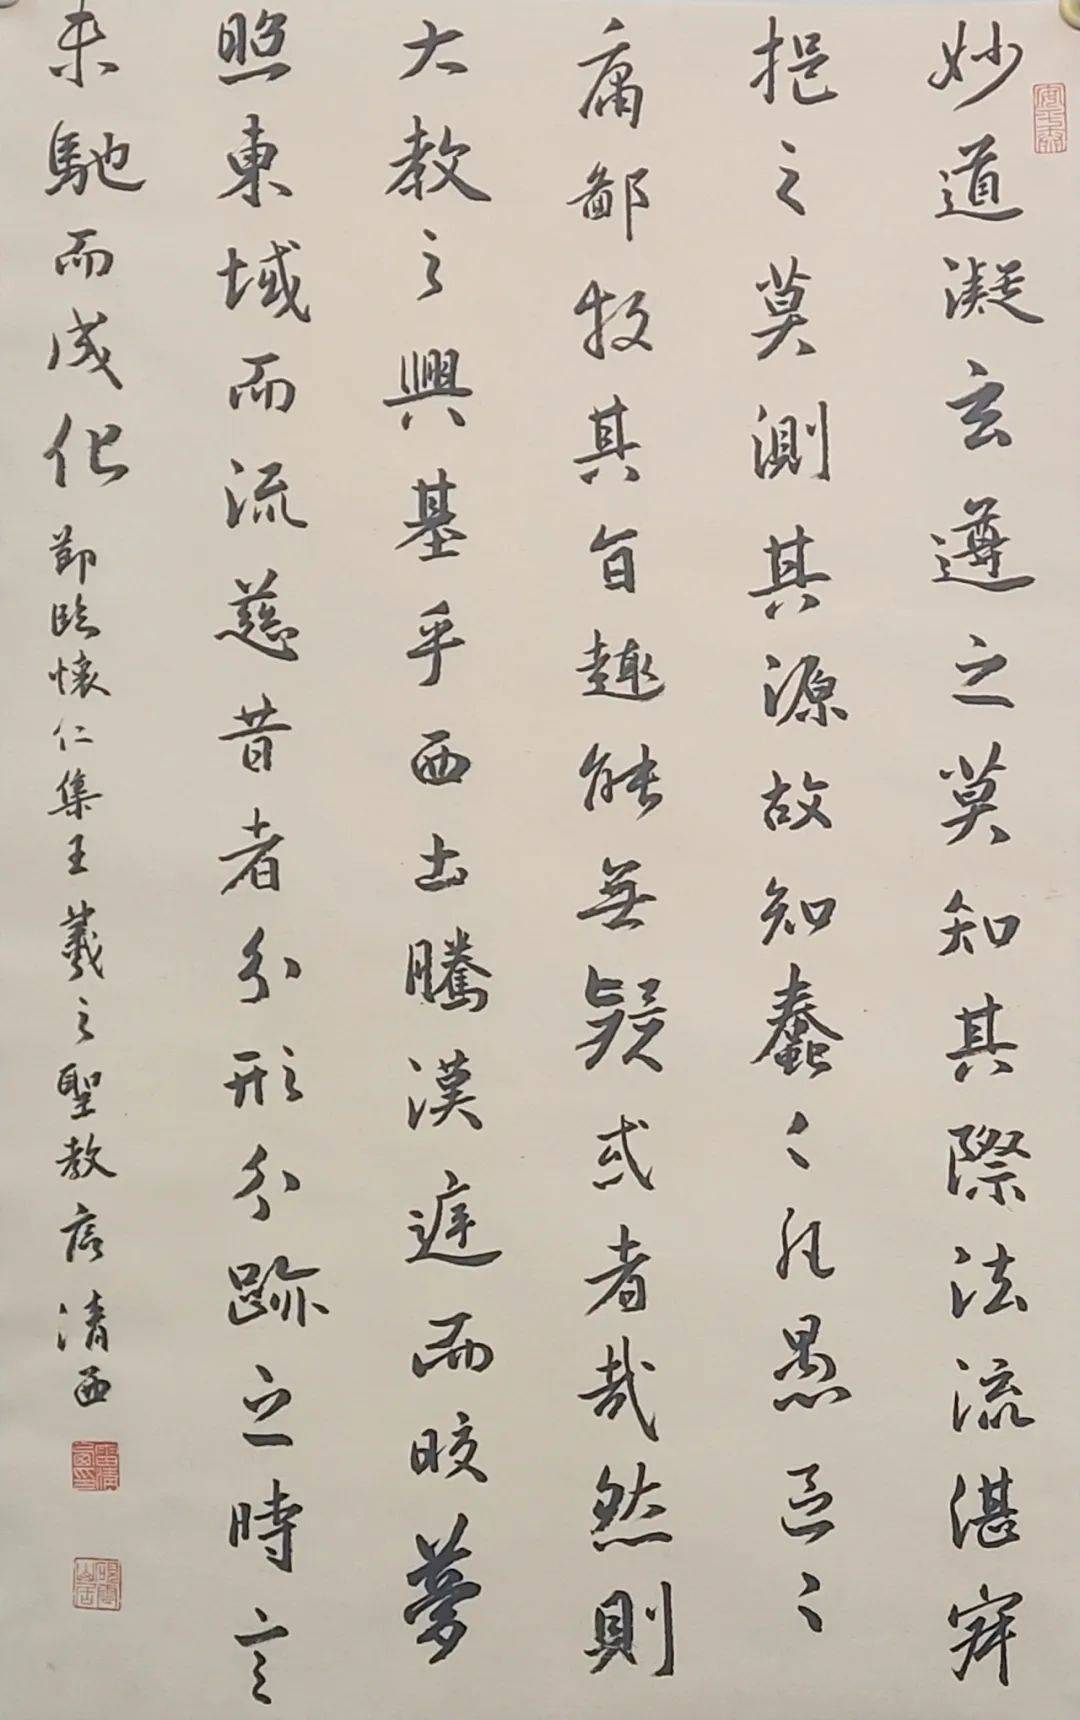 妙道凝玄遵之莫知其際法流湛寂
挹之莫測其源故知蠢〻凡愚區〻
庸鄙投其旨趣能無疑惑者哉然則
大教之興基乎西土騰漢庭而皎夢
照東域而流慈昔者分形分跡之時言
未馳而成化
節臨懷仁集王羲之聖教序 清西